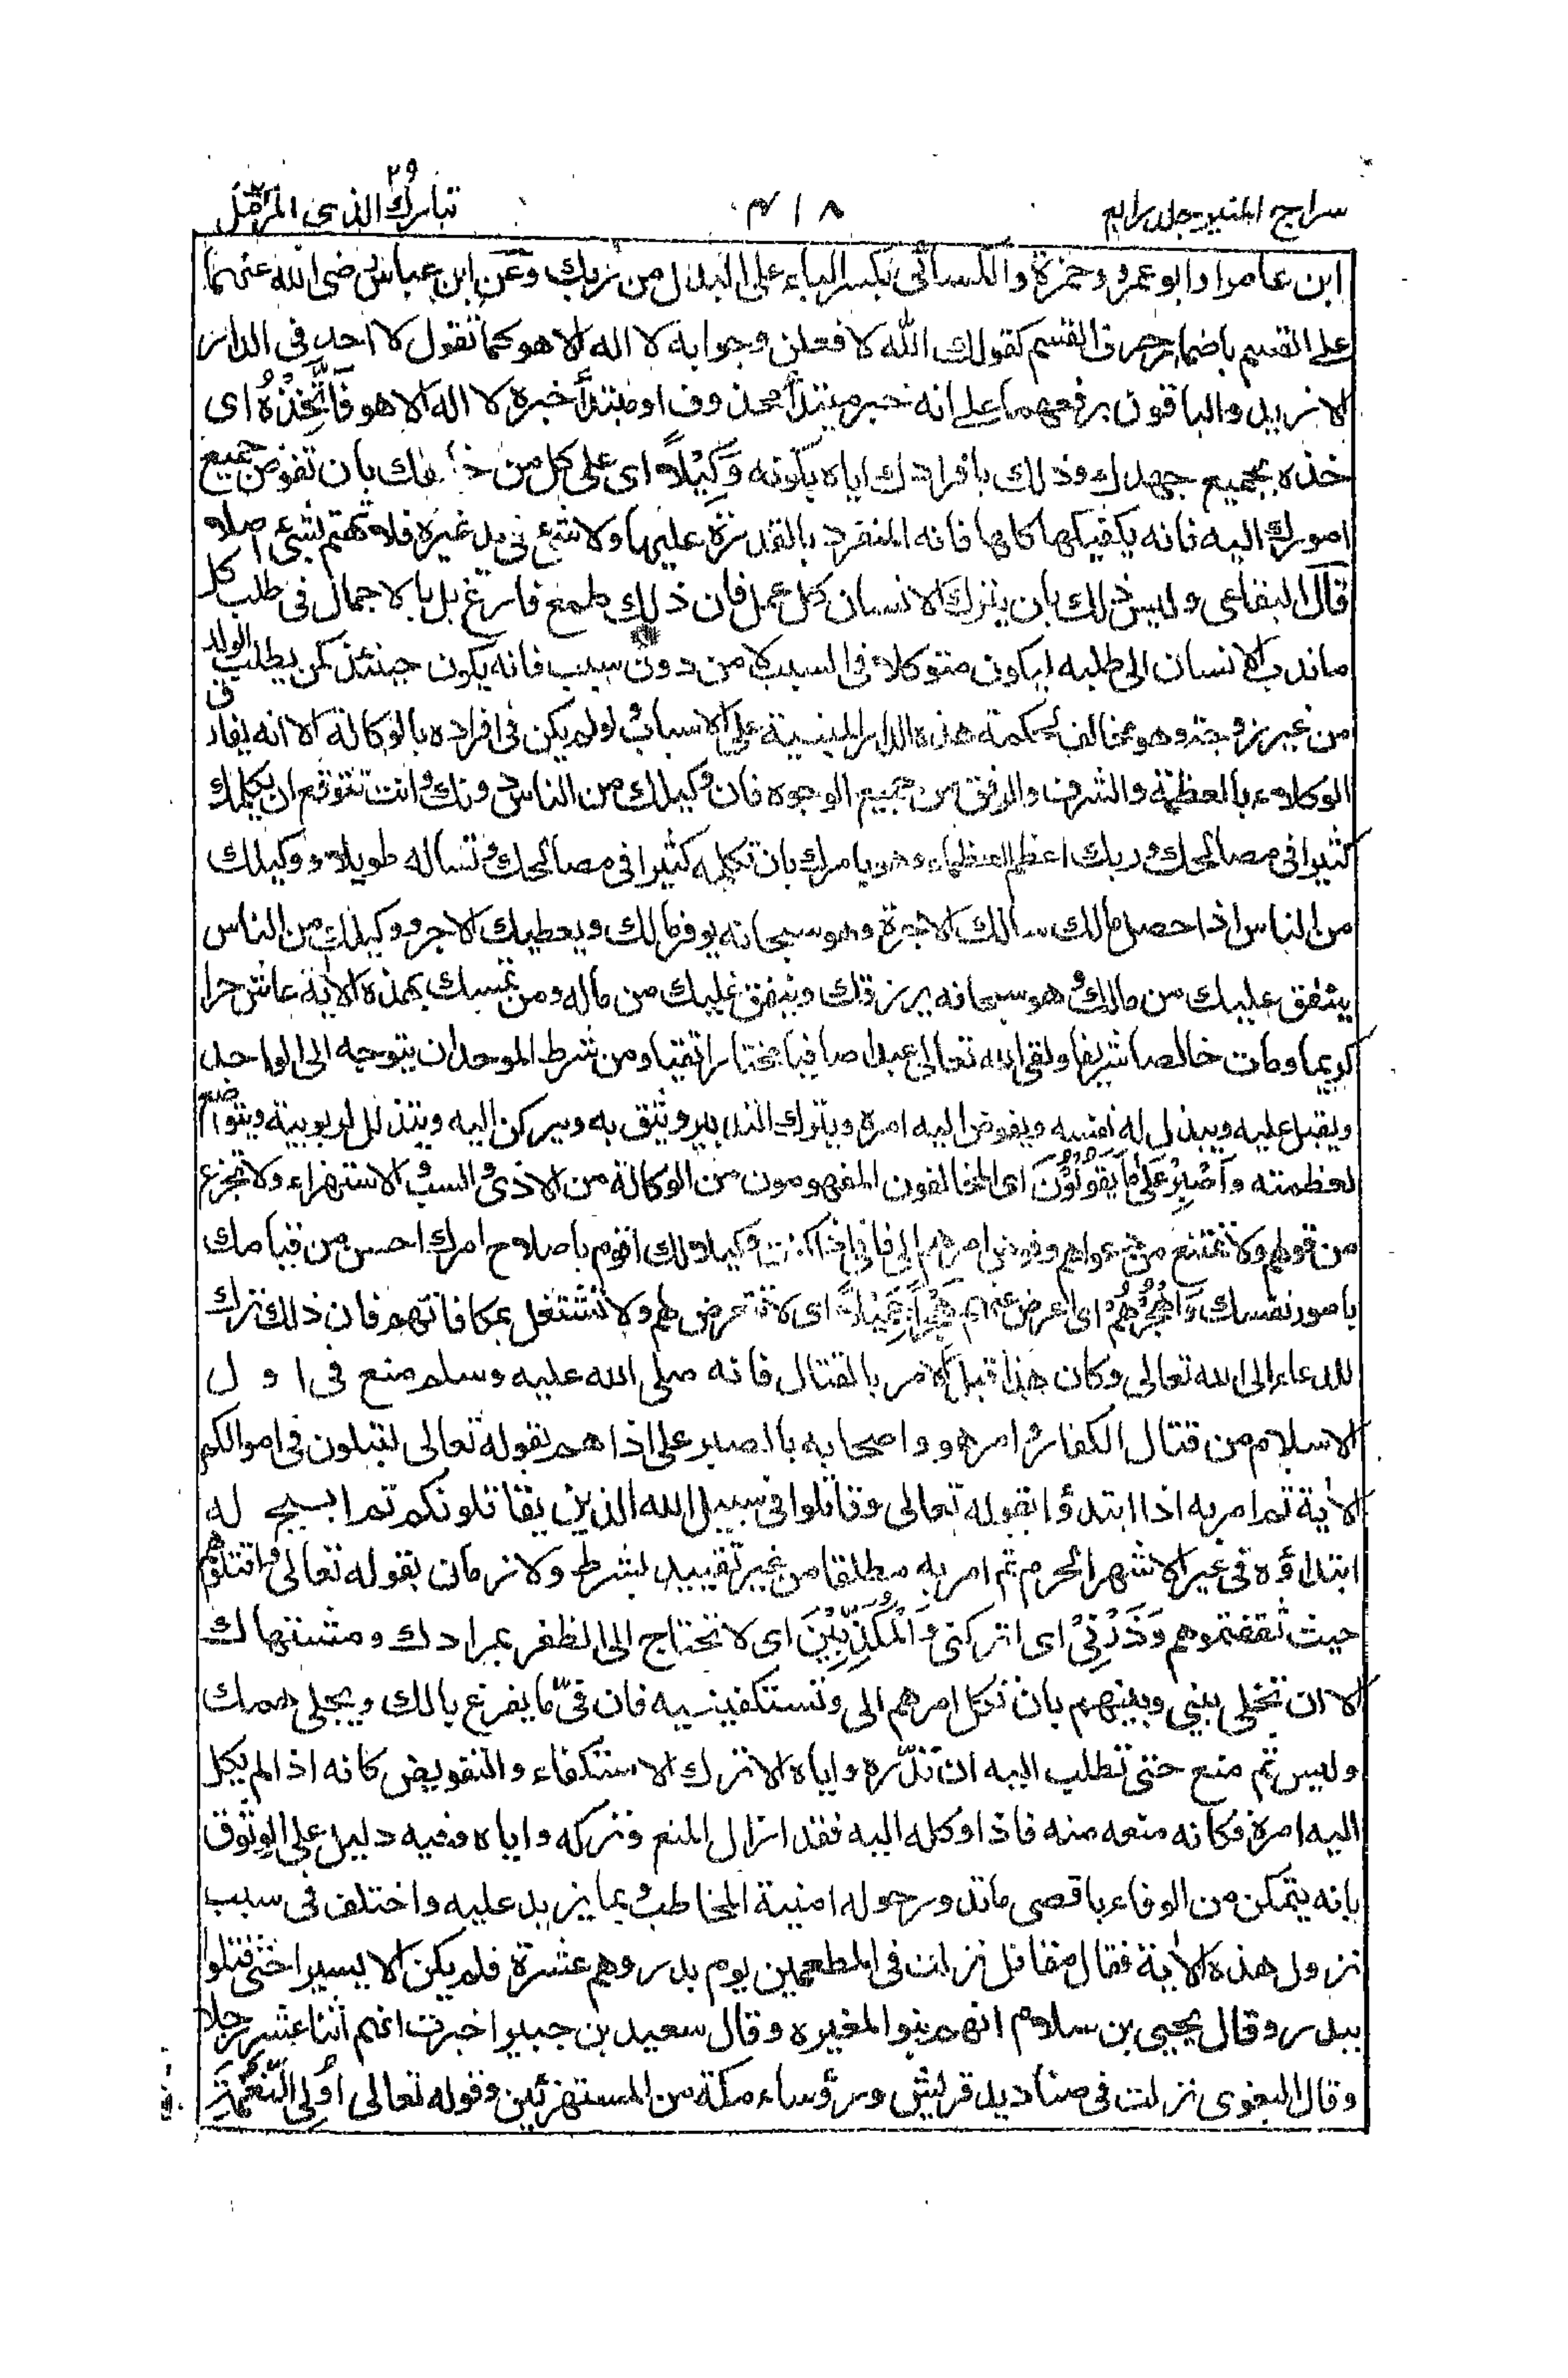 سراج المنير جلد رابع
٤١٨
تبارك الذى ٢٩ المزمل
ابن عامر وابو عمرو وحمزة والكسائى بكسر الباء على البدل من ربك وعن ابن عباس رضى الله عنهما
على القسم باضمار حرف القسم كقولك الله لافعلن وجوابه لا اله الا هو كما تقول لا احد فى الدار
الا زيد والباقون برفعهما على انه خبر مبتدأ محذوف او مبتدأ خبره لا اله الا هو فَاتَّخِذْهُ اى
خذه بجميع جهدك وذلك بافرادك اياه بكونه وَكِيْلًا اى على كل من خالفك بان تفوض جميع
امورك اليه فانه يكفيكها كلها فانه المنفرد بالقدرة عليها ولا شئ فى يد غيره فلا تهتم بشئ اصلا
قال البقاعى وليس ذلك بان يترك الانسان كل عمل فان ذلك طمع فارغ بل بالاجمال فى طلب كل
ما ندب الانسان الى طلبه ليكون متوكلا فى السبب لا من دون سبب فانه يكون حينئذ كمن يطلب الولد
من غير زوجة وهو مخالف لحكمة هذه الدار المبنية على الاسباب ولو لم يكن فى افراده بالوكالة الا انه يفارق
الوكلاء بالعظمة والشرف والرفق من جميع الوجوه فان وكيلك من الناس دونك وانت تتوقع ان يكلمك
كثيرا فى مصالحك وربك اعظم العظماء وهو يامرك بان تكلمه كثيرا فى مصالحك وتساله طويلا ووكيلك
من الناس اذا حصل مالك سالك الاجرة وهو سبحانه يوفر مالك ويعطيك الاجر ووكيلك من الناس
ينفق عليك من مالك وهو سبحانه يرزقك وينفق عليك من ماله ومن تمسك بهذه الاٰية عاش حرا
كريما ومات خالصا شريفا ولقى الله تعالى عبدا صافيا مختارا تقيا ومن شرط الموحد ان يتوجه الى الواحد
ويقبل عليه ويبذل له نفسه ويفوض اليه امره ويترك التدبير ويثق به ويركن اليه ويتذلل لربوبيته ويتواضع
لعظمته وَاصْبِرْ عَلٰى مَا يَقُوْلُوْنَ اى المخالفون المفهومون من الوكالة من الاذى والسب والاستهزاء ولا تجزع
من قولهم ولا تمتنع من دعواهم وفوض امرهم الى فانى اذا كنت وكيلا لك اقوم باصلاح امرك احسن من قيامك
بامور نفسك وَاهْجُرْهُمْ اى اعرض عنهم هَجْرًا جَمِيْلًا اى لا تتعرض لهم ولا تشتغل بمكافاتهم فان ذلك ترك
للدعاء الى الله تعالى وكان هذا قبل الامر بالقتال فانه صلى الله عليه وسلم منع فى اول
الاسلام من قتال الكفار وامر هو واصحابه بالصبر على اذاهم بقوله تعالى لتبلون فى اموالكم
الاٰية ثم امر به اذا ابتدؤا بقوله تعالى وقاتلوا فى سبيل الله الذين يقاتلونكم ثم ابيح له
ابتداؤه فى غير الاشهر الحرم ثم امر به مطلقا من غير تقييد بشرط ولا زمان بقوله تعالى واقتلوهم
حيث ثقفتموهم وَذَرْنِىْ اى اتركنى وَالْمُكَذِّبِيْنَ اى لا تحتاج الى الظفر بمرادك ومشتهاك
الا ان تخلى بينى وبينهم بان تكل امرهم الى وتستكفينيه فان فىّ ما يفرغ بالك ويجلى همك
وليس ثم منع حتى تطلب اليه ان تذره واياه الا ترك الاستكفاء والتفويض كانه اذا لم يكل
اليه امره فكانه منعه منه فاذا وكله اليه فقد ازال المنع وتركه واياه وفيه دليل على الوثوق
بانه يتمكن من الوفاء باقصى ما تدور حوله امنية المخاطب وبما يزيد عليه واختلف فى سبب
نزول هذه الاٰية فقال مقاتل نزلت فى المطعمين يوم بدر وهم عشرة فلم يكن الا يسيرا حتى قتلوا
ببدر وقال يحيى بن سلام انهم بنو المغيره وقال سعيد بن جبير اخبرت انهم اثنا عشر رجلا
وقال البغوى نزلت فى صناديد قريش ورؤساء مكة من المستهزئين وقوله تعالى اُولِى النَّعْمَةِ